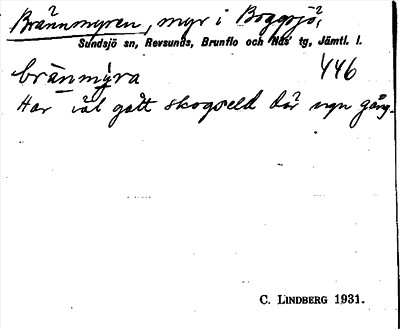 Brännmyren, myr i Boggsjö,
Sundsjö sn, Revsunds, Brunflo och Näs' tg, Jämtl. l.
brä̀nmy̆ra 446
Har väl gått skogseld där ngn gång.
C. LINDBERG 1931.